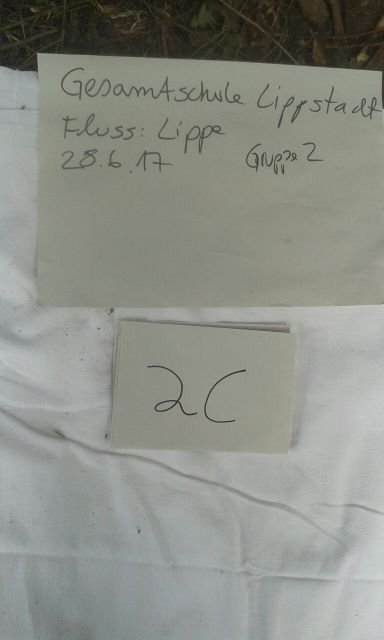 Gesamtschule Lippstadt
Fluss: Lippe
28.6.17 Gruppe 2
2C